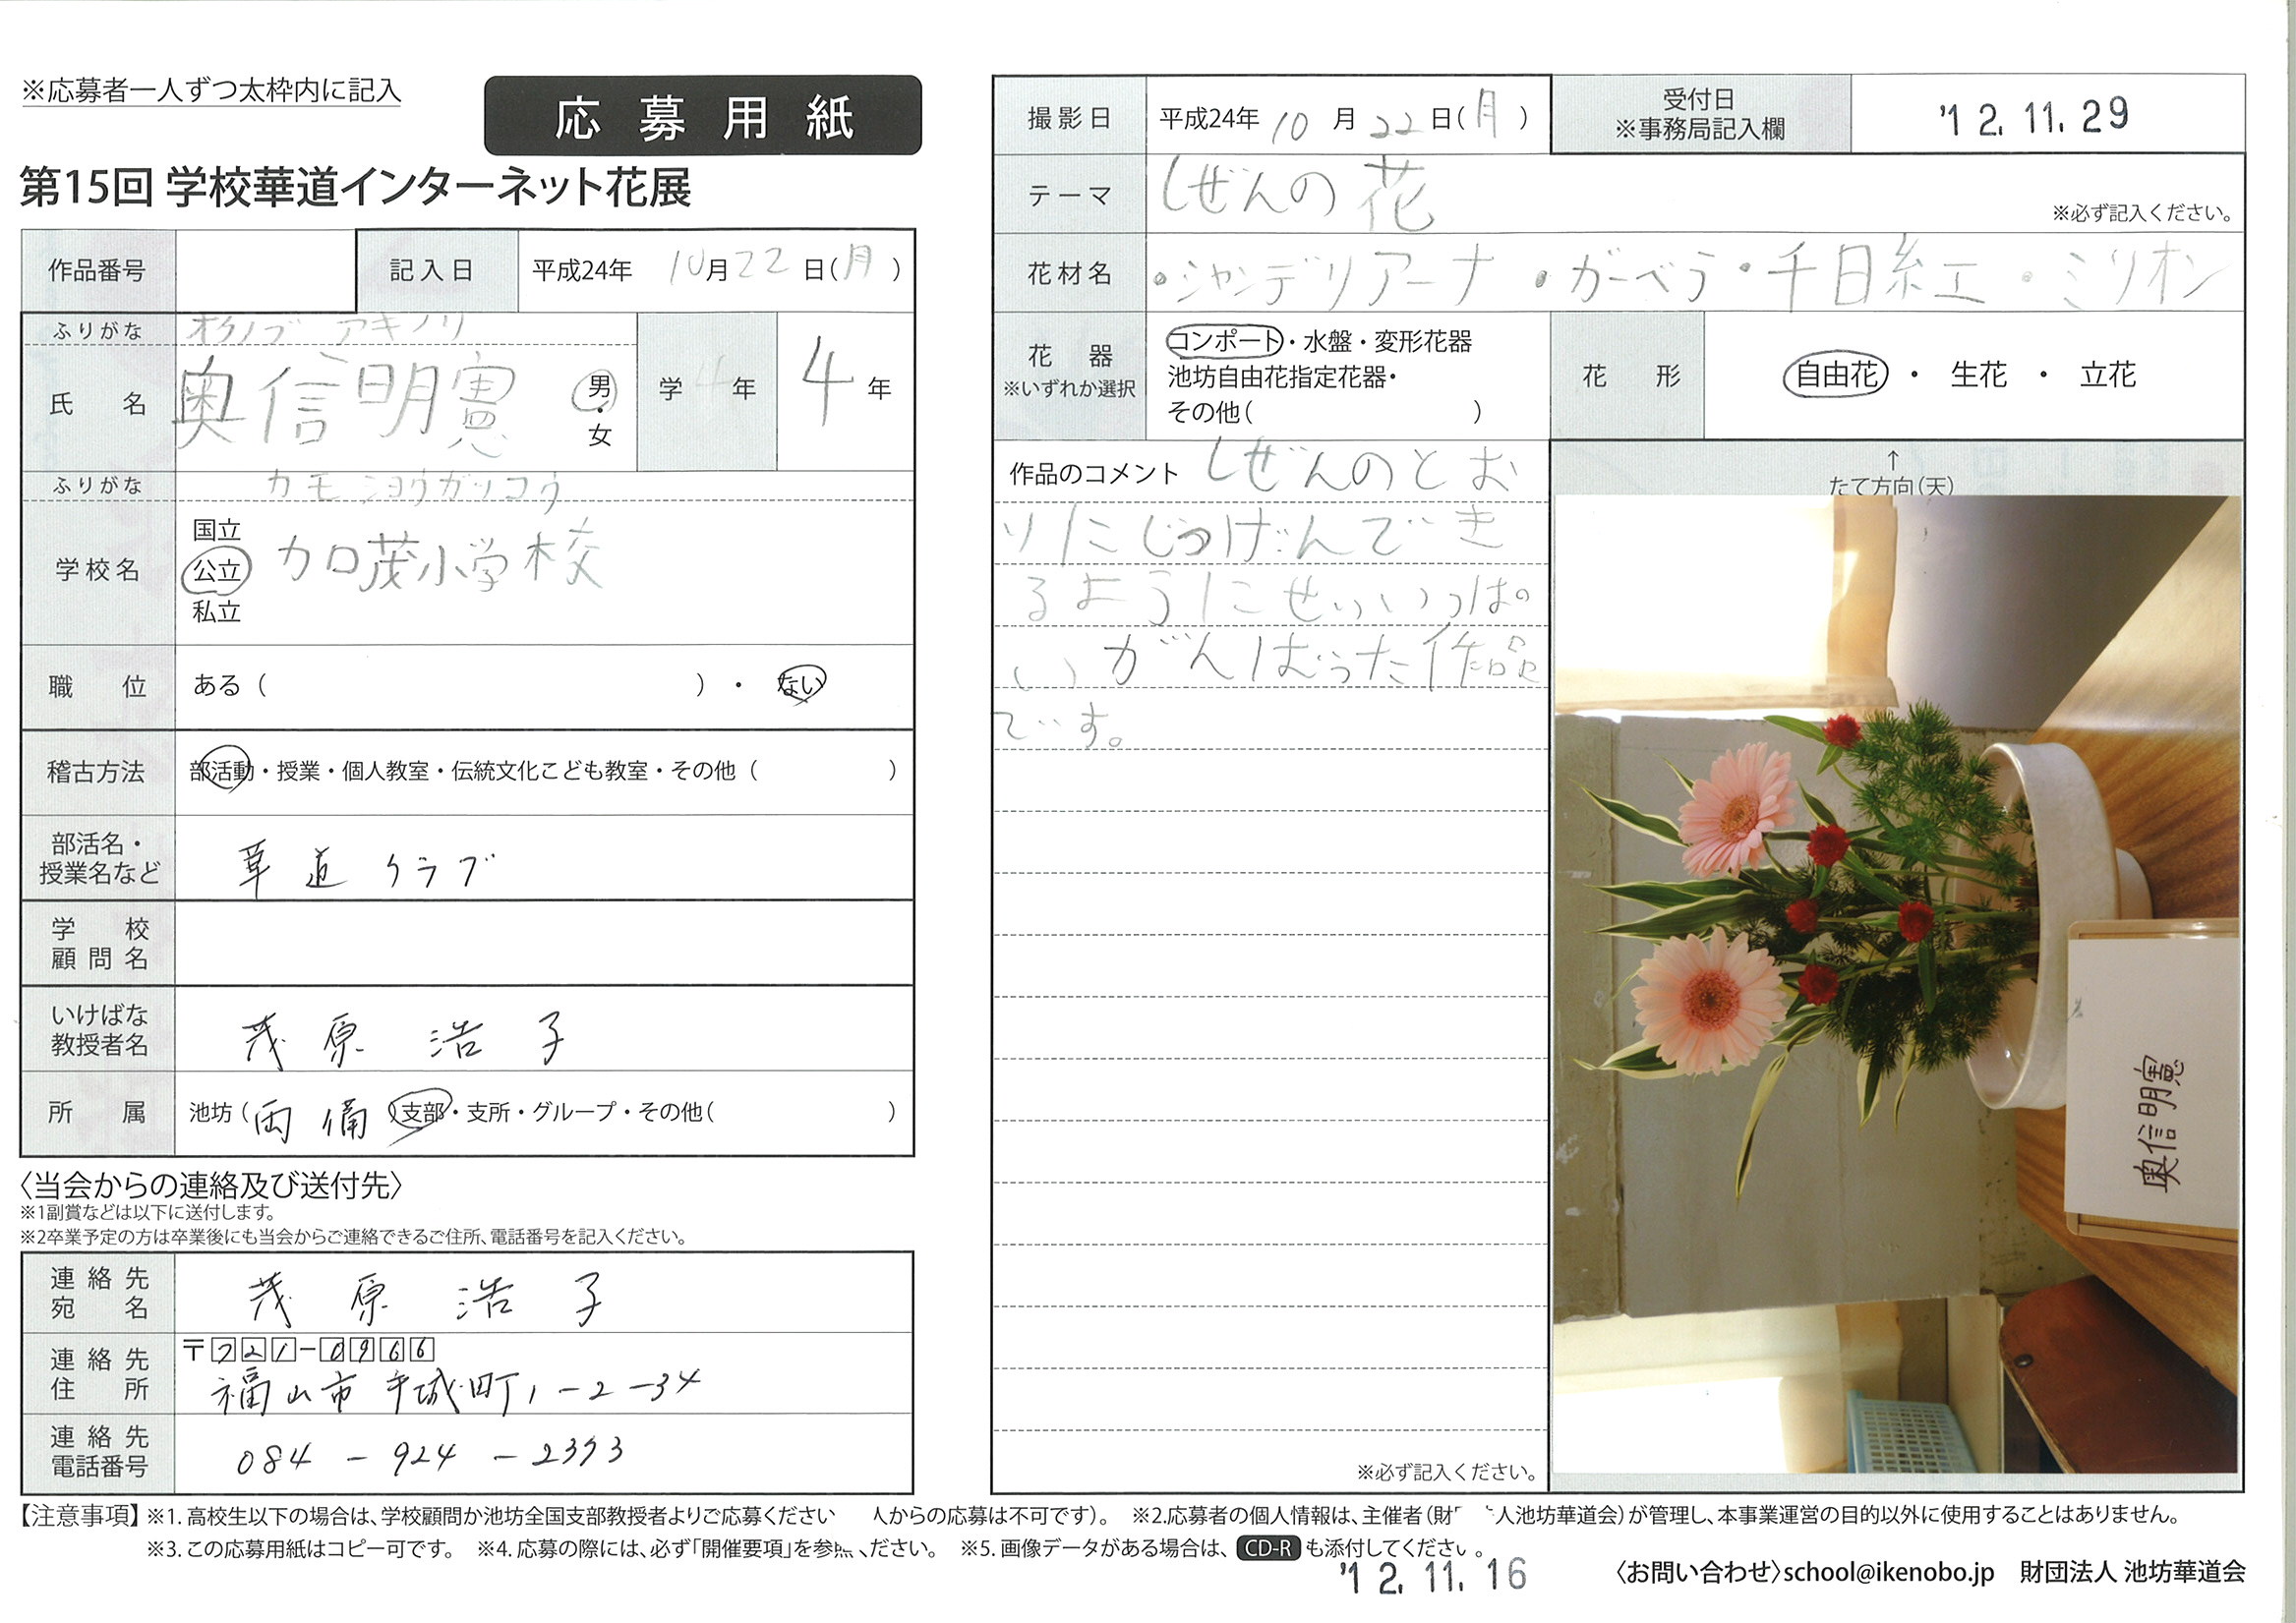 ※応募者一人ずつ太枠内に記入
応募用紙
第15回 学校華道インターネット花展
作品番号
記入日 平成24年 10月22日(月)
ふりがな オクノブ アキノリ
氏名 奥信明憲 男・女 学年 4年
ふりがな カモショウガッコウ
学校名 国立 公立 私立 加茂小学校
職位 ある( )・ない
稽古方法 部活動・授業・個人教室・伝統文化こども教室・その他( )
部活名・授業名など 華道クラブ
学校顧問名
いけばな教授者名 茂原浩子
所属 池坊(両備)支部・支所・グループ・その他( )
〈当会からの連絡及び送付先〉
※1副賞などは以下に送付します。
※2卒業予定の方は卒業後にも当会からご連絡できるご住所、電話番号を記入ください。
連絡先宛名 茂原浩子
連絡先住所 〒721-0966
福山市手城町1-2-34
連絡先電話番号 084-924-2373
撮影日 平成24年10月22日(月)
受付日 ※事務局記入欄 '12.11.29
テーマ しぜんの花 ※必ず記入ください。
花材名 ・シャンデリアーナ ・ガーベラ ・千日紅 ・ミリオン
花器 ※いずれか選択 コンポート・水盤・変形花器
池坊自由花指定花器・
その他( )
花形 自由花・生花・立花
作品のコメント しぜんのとお
りにじつげんでき
るようにせいいっぱ
いがんばった作品
です。
※必ず記入ください。
↑
たて方向(天)
奥信明憲
【注意事項】※1.高校生以下の場合は、学校顧問か池坊全国支部教授者よりご応募ください 人からの応募は不可です)。 ※2.応募者の個人情報は、主催者(財 人池坊華道会)が管理し、本事業運営の目的以外に使用することはありません。
※3.この応募用紙はコピー可です。 ※4.応募の際には、必ず「開催要項」を参 ください。 ※5.画像データがある場合は、CD-Rも添付してください。
'12.11.16
〈お問い合わせ〉school@ikenobo.jp 財団法人 池坊華道会